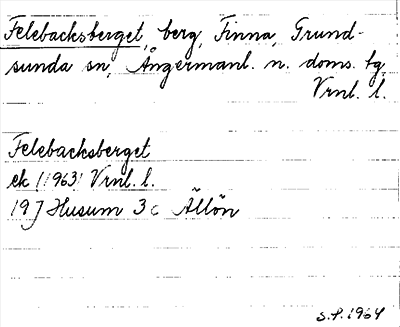 Felebacksberget, berg, Finna, Grund-
sunda sn, Ångermanl. n. doms. tg,
Vrnl. l.
Felebacksberget
ek (1963) Vrnl. l.
19J Husum 3c Ällön
S.P. 1964